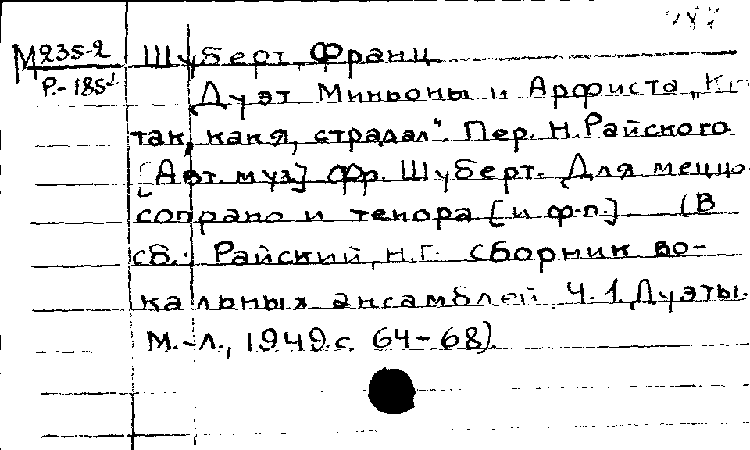 М235-2 Шуберт, Франц
Р-185 Дуэт Миньоны и Арфиста „Кто
так, как я, страдал". Пер. Н. Райского
[Авт. муз] Фр. Шуберт. Для меццо-
сопрано и тенора [и ф-п.] (В
сб.: Райский, Н.Г. Сборник во-
кальных ансамблей. Ч. 1. Дуэты.
М.-Л., 1949. с. 64-68).